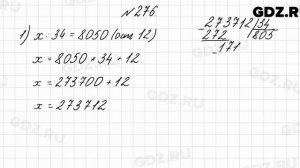 № 276.
GDZ.RU
1) x : 34 = 8050 (ост 12)
x = 8050 * 34 + 12
x = 273700 + 12
x = 273712
273712 | 34
272 | 805
171